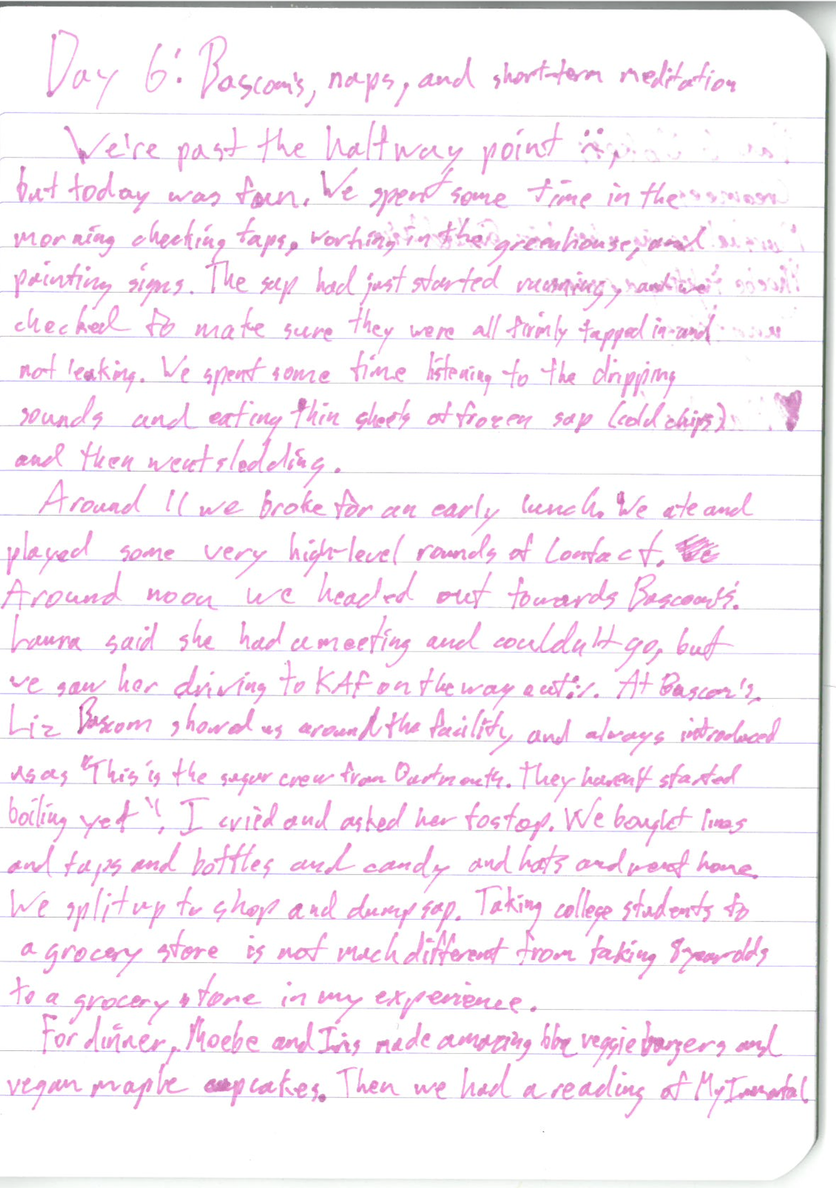 Day 6: Bascom's, naps, and short-term meditation
We're past the halfway point :(,
but today was fun. We spent some time in the
morning checking taps, working in the greenhouse, and
painting signs. The sap had just started running, and we
checked to make sure they were all firmly tapped in and
not leaking. We spent some time listening to the dripping
sounds and eating thin sheets of frozen sap (cold chips)
and then went sledding.
Around 11 we broke for an early lunch. We ate and
played some very high-level rounds of Contact.
Around noon we headed out towards Bascom's.
Laura said she had a meeting and couldn't go, but
we saw her driving to KAF on the way out :/. At Bascom's,
Liz Bascom showed us around the facility and always introduced
us as "This is the sugar crew from Dartmouth. They haven't started
boiling yet". I cried and asked her to stop. We bought lines
and taps and bottles and candy and hats and went home.
We split up to shop and dump sap. Taking college students to
a grocery store is not much different from taking 8 year olds
to a grocery store in my experience.
For dinner, Phoebe and Iris made amazing bbq veggie burgers and
vegan maple cupcakes. Then we had a reading of My Immortal